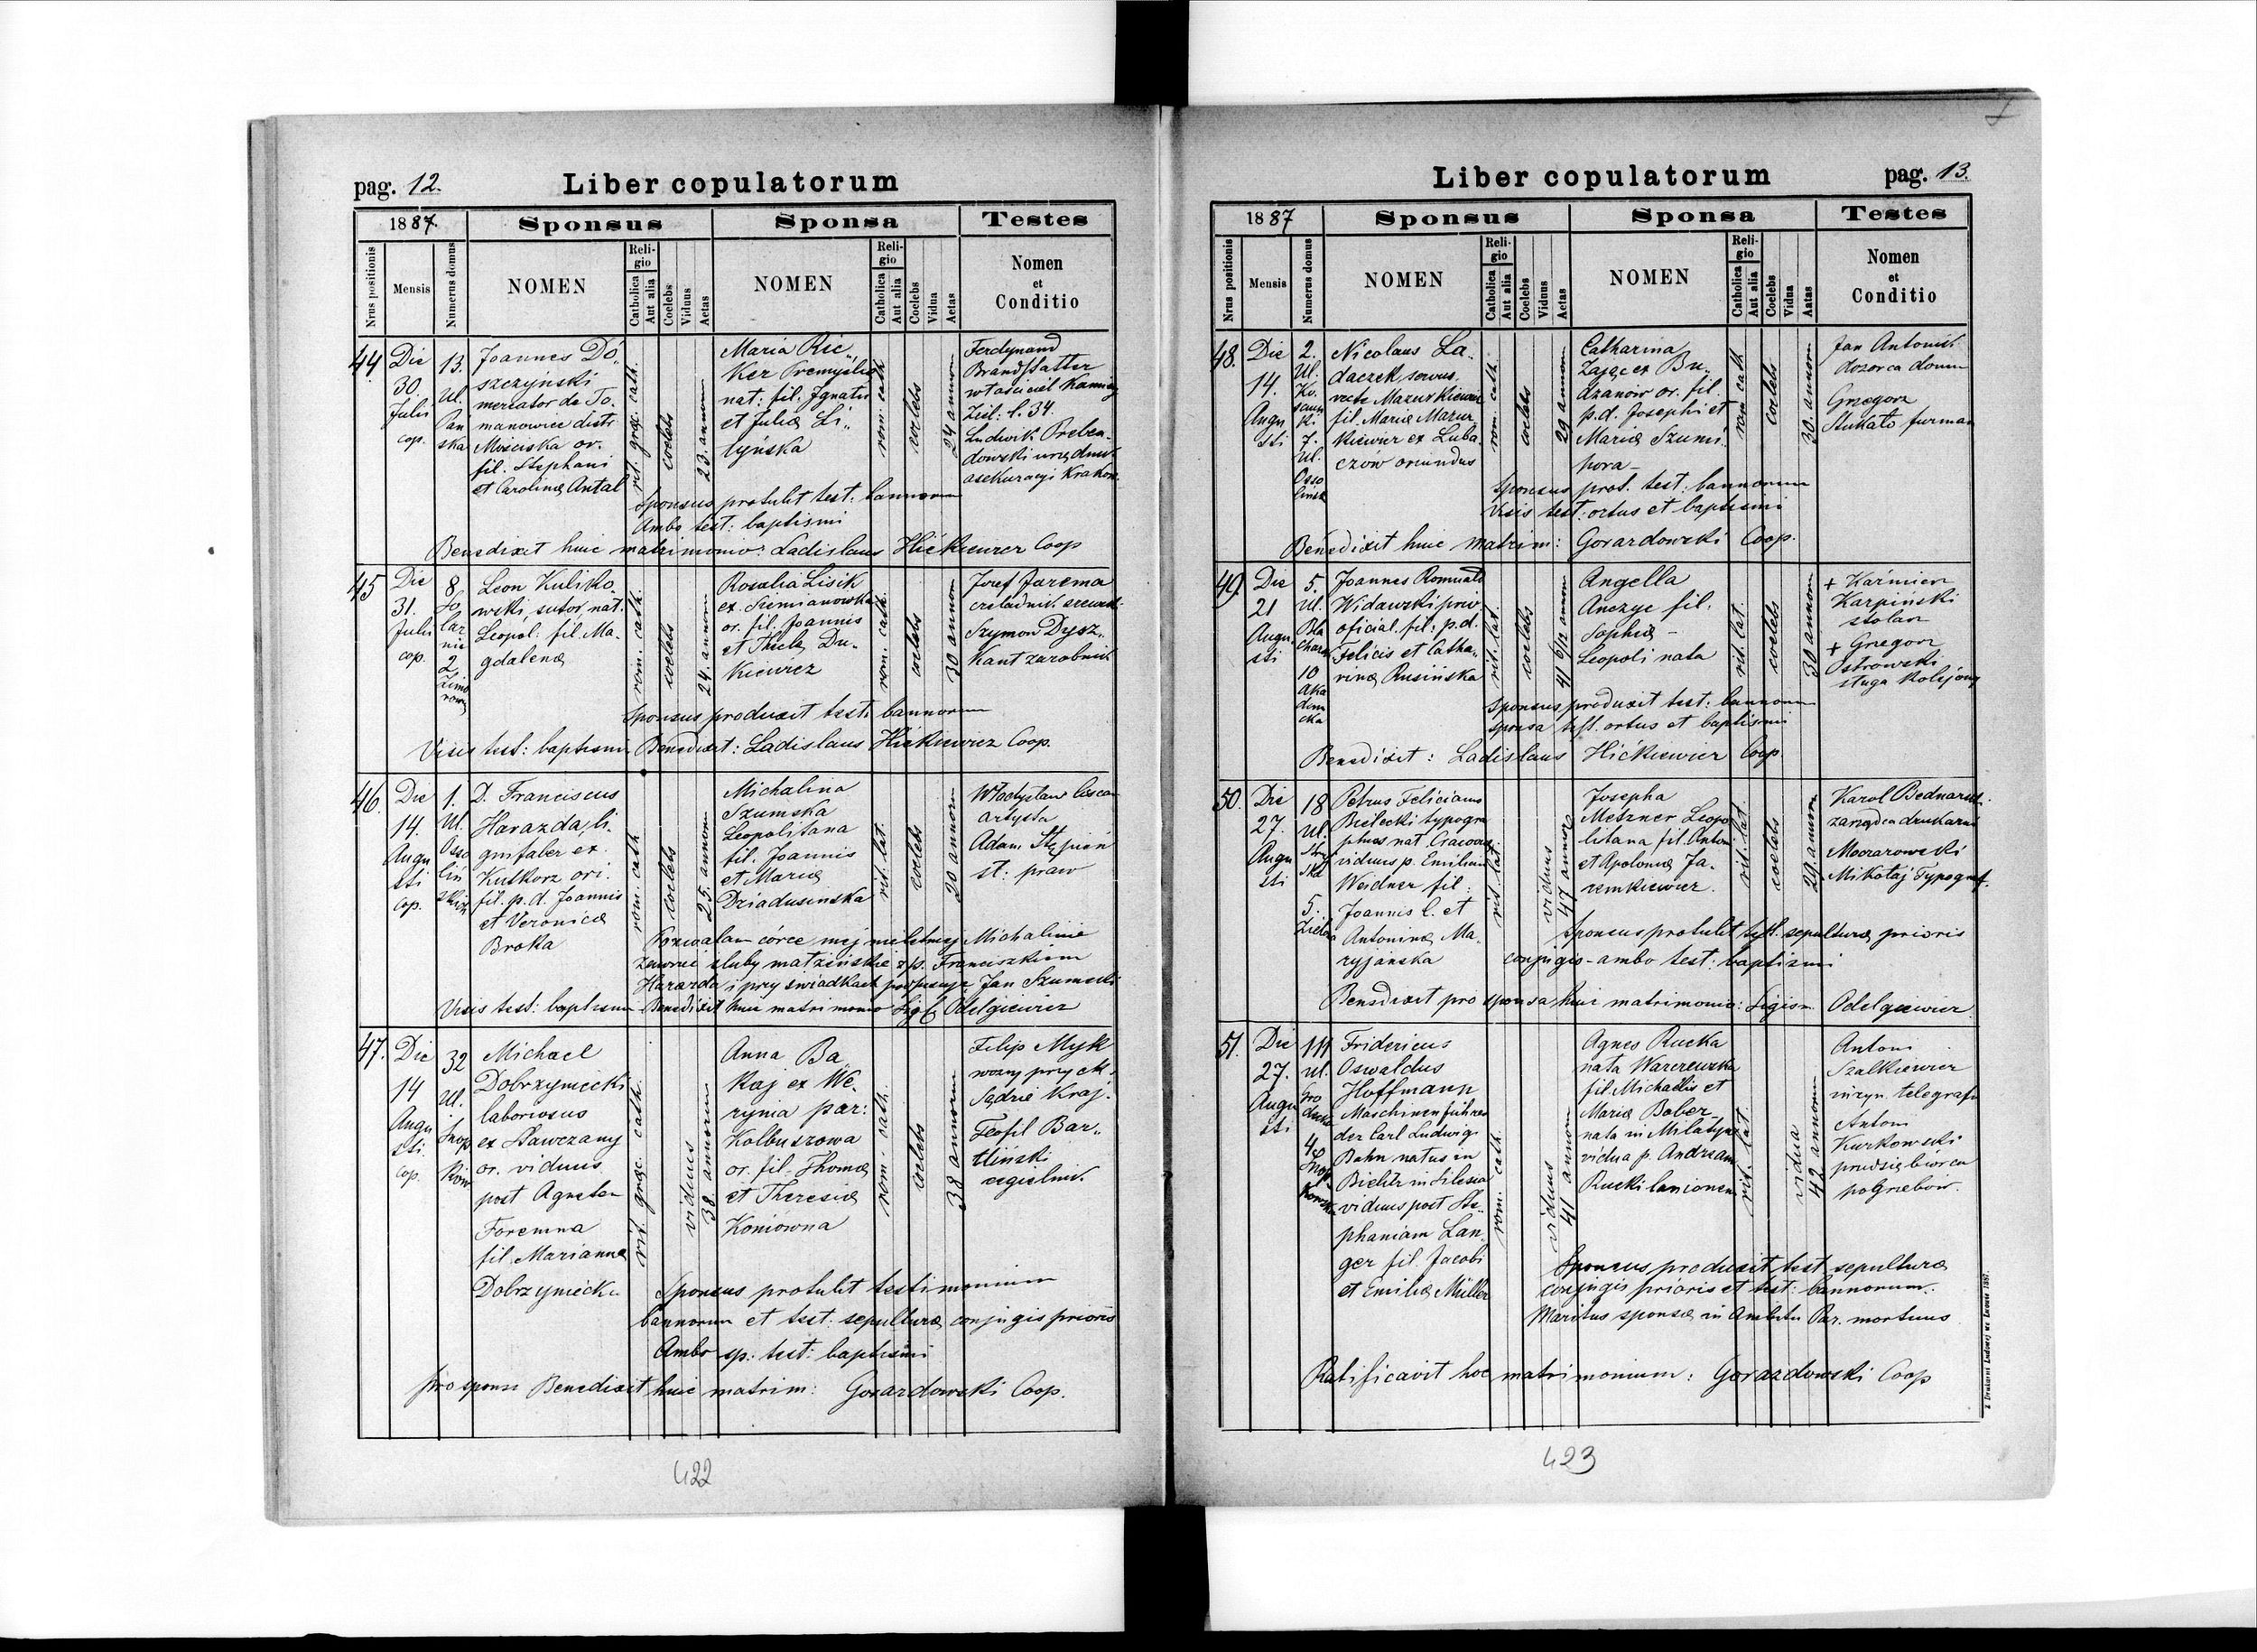 pag. 12.
Liber copulatorum
1887.
Sponsus
Sponsa
Testes
Nrus positionis
Mensis
Numerus domus
NOMEN
Religio
Catholica
Aut alia
Coelebs
Viduus
Aetas
NOMEN
Religio
Catholica
Aut alia
Coelebs
Vidua
Aetas
Nomen
et
Conditio
44
Die
30.
Julii
cop.
13.
Ul.
Pan
ska
Joannes Do„
szczyński
mercator de To„
manowice distr
Mościska or.
fil. Stephani
et Carolinæ Antal
rit. græc. cath.
coelebs
23. annorum
Maria Ric„
Ker Premyslia
nat: fil. Ignatii
et Juliæ Li„
tyńska
rom: cath
coelebs
24 annorum
Ferdynand
Brandstatter
właściciel kamieny
Ziel. l. 34.
Ludwik Preben„
dowski urzędnik
asekuracyi Krakow.
Sponsus protulit test: bannorum
Ambo test: baptismi
Benedixit huic matrimonio: Ladislaus Hićkiewicz Coop
45
Die
31.
Julii
cop.
8
2
Leon Kuliko„
wski, sutor, nat.
Leopol: fil. Ma„
gdalenæ
rom. cath.
coelebs
24. annorum
Rosalia Lisik
ex Siemianowka
or. fil. Joannis
et Theclæ Du„
kiewicz
rom. cath.
coelebs
30 annorum
Józef Jarema
czeladnik szewski
Szymon Dysz„
Kant zarobnik
Sponsus produxit testi bannorum
Visis test: baptismi Benedixit: Ladislaus Hićkiewicz Coop.
46.
Die
14.
Augu
sti
Cop.
1.
Ul.
Osso
liń
skich
D. Franciscus
Harazda, li„
gnifaber ex
Kutkorz ori.
fil. p. d. Joannis
et Veronicæ
Broka
rom. cath
coelebs
25. annorum
Michalina
Szumska
Leopolitana
fil. Joannis
et Mariæ
Dziadusinska
rit. lat.
coelebs
20 annorum
Władysław
artysta
Adam Stępień
st: praw
Pozwalam córce mej nieletniej Michalinie
zawrzeć śluby małżeńskie z p. Franciszkiem
Harazda i przy świadkach podpisuję Jan Szumski
Visis test: baptismi Benedixit huic matrimonio Sigl. Odelgiewicz
47.
Die
14
Augu
sti.
cop.
32
Ul.
Snop
Kow
Michael
Dobrzyniecki
laboriosus
ex Sławczany
or. viduus
post Agnetem
Foremna
fil. Mariannæ
Dobrzyniecka
rit græc. cath.
viduus
38 annorum
Anna Ba
Kaj ex We„
rynia par:
Kolbuszowa
or. fil. Thomæ
et Theresiæ
Koniówna
rom. cath.
coelebs
38 annorum
Filip Myk
woźny przy ck.
Sądzie Kraj.
Teofil Bar„
tliński
cegielnik.
Sponsus protulit testimonium
bannorum et test: sepulturæ conjugis prioris
Ambo sp: test: baptismi
pro sponsi Benedixit huic matrim: Gorazdowski Coop.
422
Liber copulatorum
pag. 13.
1887
Sponsus
Sponsa
Testes
Nrus positionis
Mensis
Numerus domus
NOMEN
Religio
Catholica
Aut alia
Coelebs
Viduus
Aetas
NOMEN
Religio
Catholica
Aut alia
Coelebs
Vidua
Aetas
Nomen
et
Conditio
48.
Die
14.
Augu
sti
2.
Ul.
7.
Ul.
Osso
lińsk
Nicolaus La„
daczek servus
recte Mazurkiewicz
fil. Mariæ Mazur
kiewicz ex Luba
czów oriundus
rom. cath.
coelebs
29 annorum
Catharina
Zając ex Bu„
dzanów or. fil.
p. d. Josephi et
Mariæ Szumi
pora
rom cath
coelebs
30. annorum
Jan Antonik
dozorca domu
Grzegorz
Stukało furman
Sponsus prot. test: bannorum
Visis test: ortus et baptismi
Benedixit huic matrim: Gorazdowski Coop.
49.
Die
21
Augu
sti
5.
Ul.
Bla
charska
10
Aka
dem
cka
Joannes Romuald
Widawski priv.
oficial. fil: p. d.
Felicis et Catha„
rinæ Rusińska
rit. lat.
coelebs
41 6/12 annor
Angella
Anczyc fil.
Sophiæ
Leopoli nata
rit. lat.
coelebs
30 annorum
+ Kazimierz
Karpiński
stolarz
+ Grzegorz
Ostrowski
sługa kolejowy
Sponsus produxit test: bannorum
Sponsa test. ortus et baptismi
Benedixit: Ladislaus Hićkiewicz Coop
50.
Die
27.
Augu
sti
18
Ul.
Stry
ska
5.
Zielona
Petrus Felicianus
Bielecki typogra
phus nat. Cracoviæ
viduus p. Emilium
Weidner fil:
Joannis C. et
Antoninæ Ma„
ryjańska
rit. lat.
viduus
47 annor
Josepha
Metzner Leopo
litana fil. Antoni
et Apoloniæ Ja„
remkiewicz.
rit. lat
coelebs
29 annorum
Karol Bednarski
zarządca drukarni
Mozarowski
Mikołaj Typograf.
Sponsus protulit test. sepulturæ prioris
conjugis - ambo test: baptismi
Benedixit pro sponsa huic matrimonio: Sigism. Odelgiewicz
51.
Die
27.
Augu
sti
111
ul.
Gro
decka
4
Snop
Kowska
Fridericus
Oswaldus
Hoffmann
Maschinenführer
der Carl Ludwigs
Bahn natus in
Bielitz in Silesia
viduus post Ste„
phaniam Lan„
ger fil. Jacobi
et Emiliæ Müller
rom. cath.
viduus
41 annorum
Agnes Rucka
nata Warzewska
fil. Michaelis et
Mariæ Bober
nata in Milatyn
vidua p. Andream
Rucki lanionem
rit. lat
vidua
42 annorum
Antoni
Szalkiewicz
inżyn. telegrafu
Antoni
Kurkowski
przedsiębiorca
pogrzebów.
Sponsus produxit test. sepulturæ
conjugis prioris et test: bannorum.
Maritus sponsæ in Ambitu Par. mortuus
Ratificavit hoc matrimonium: Gorazdowski Coop
Z Drukarni Ludowej we Lwowie 1887.
423